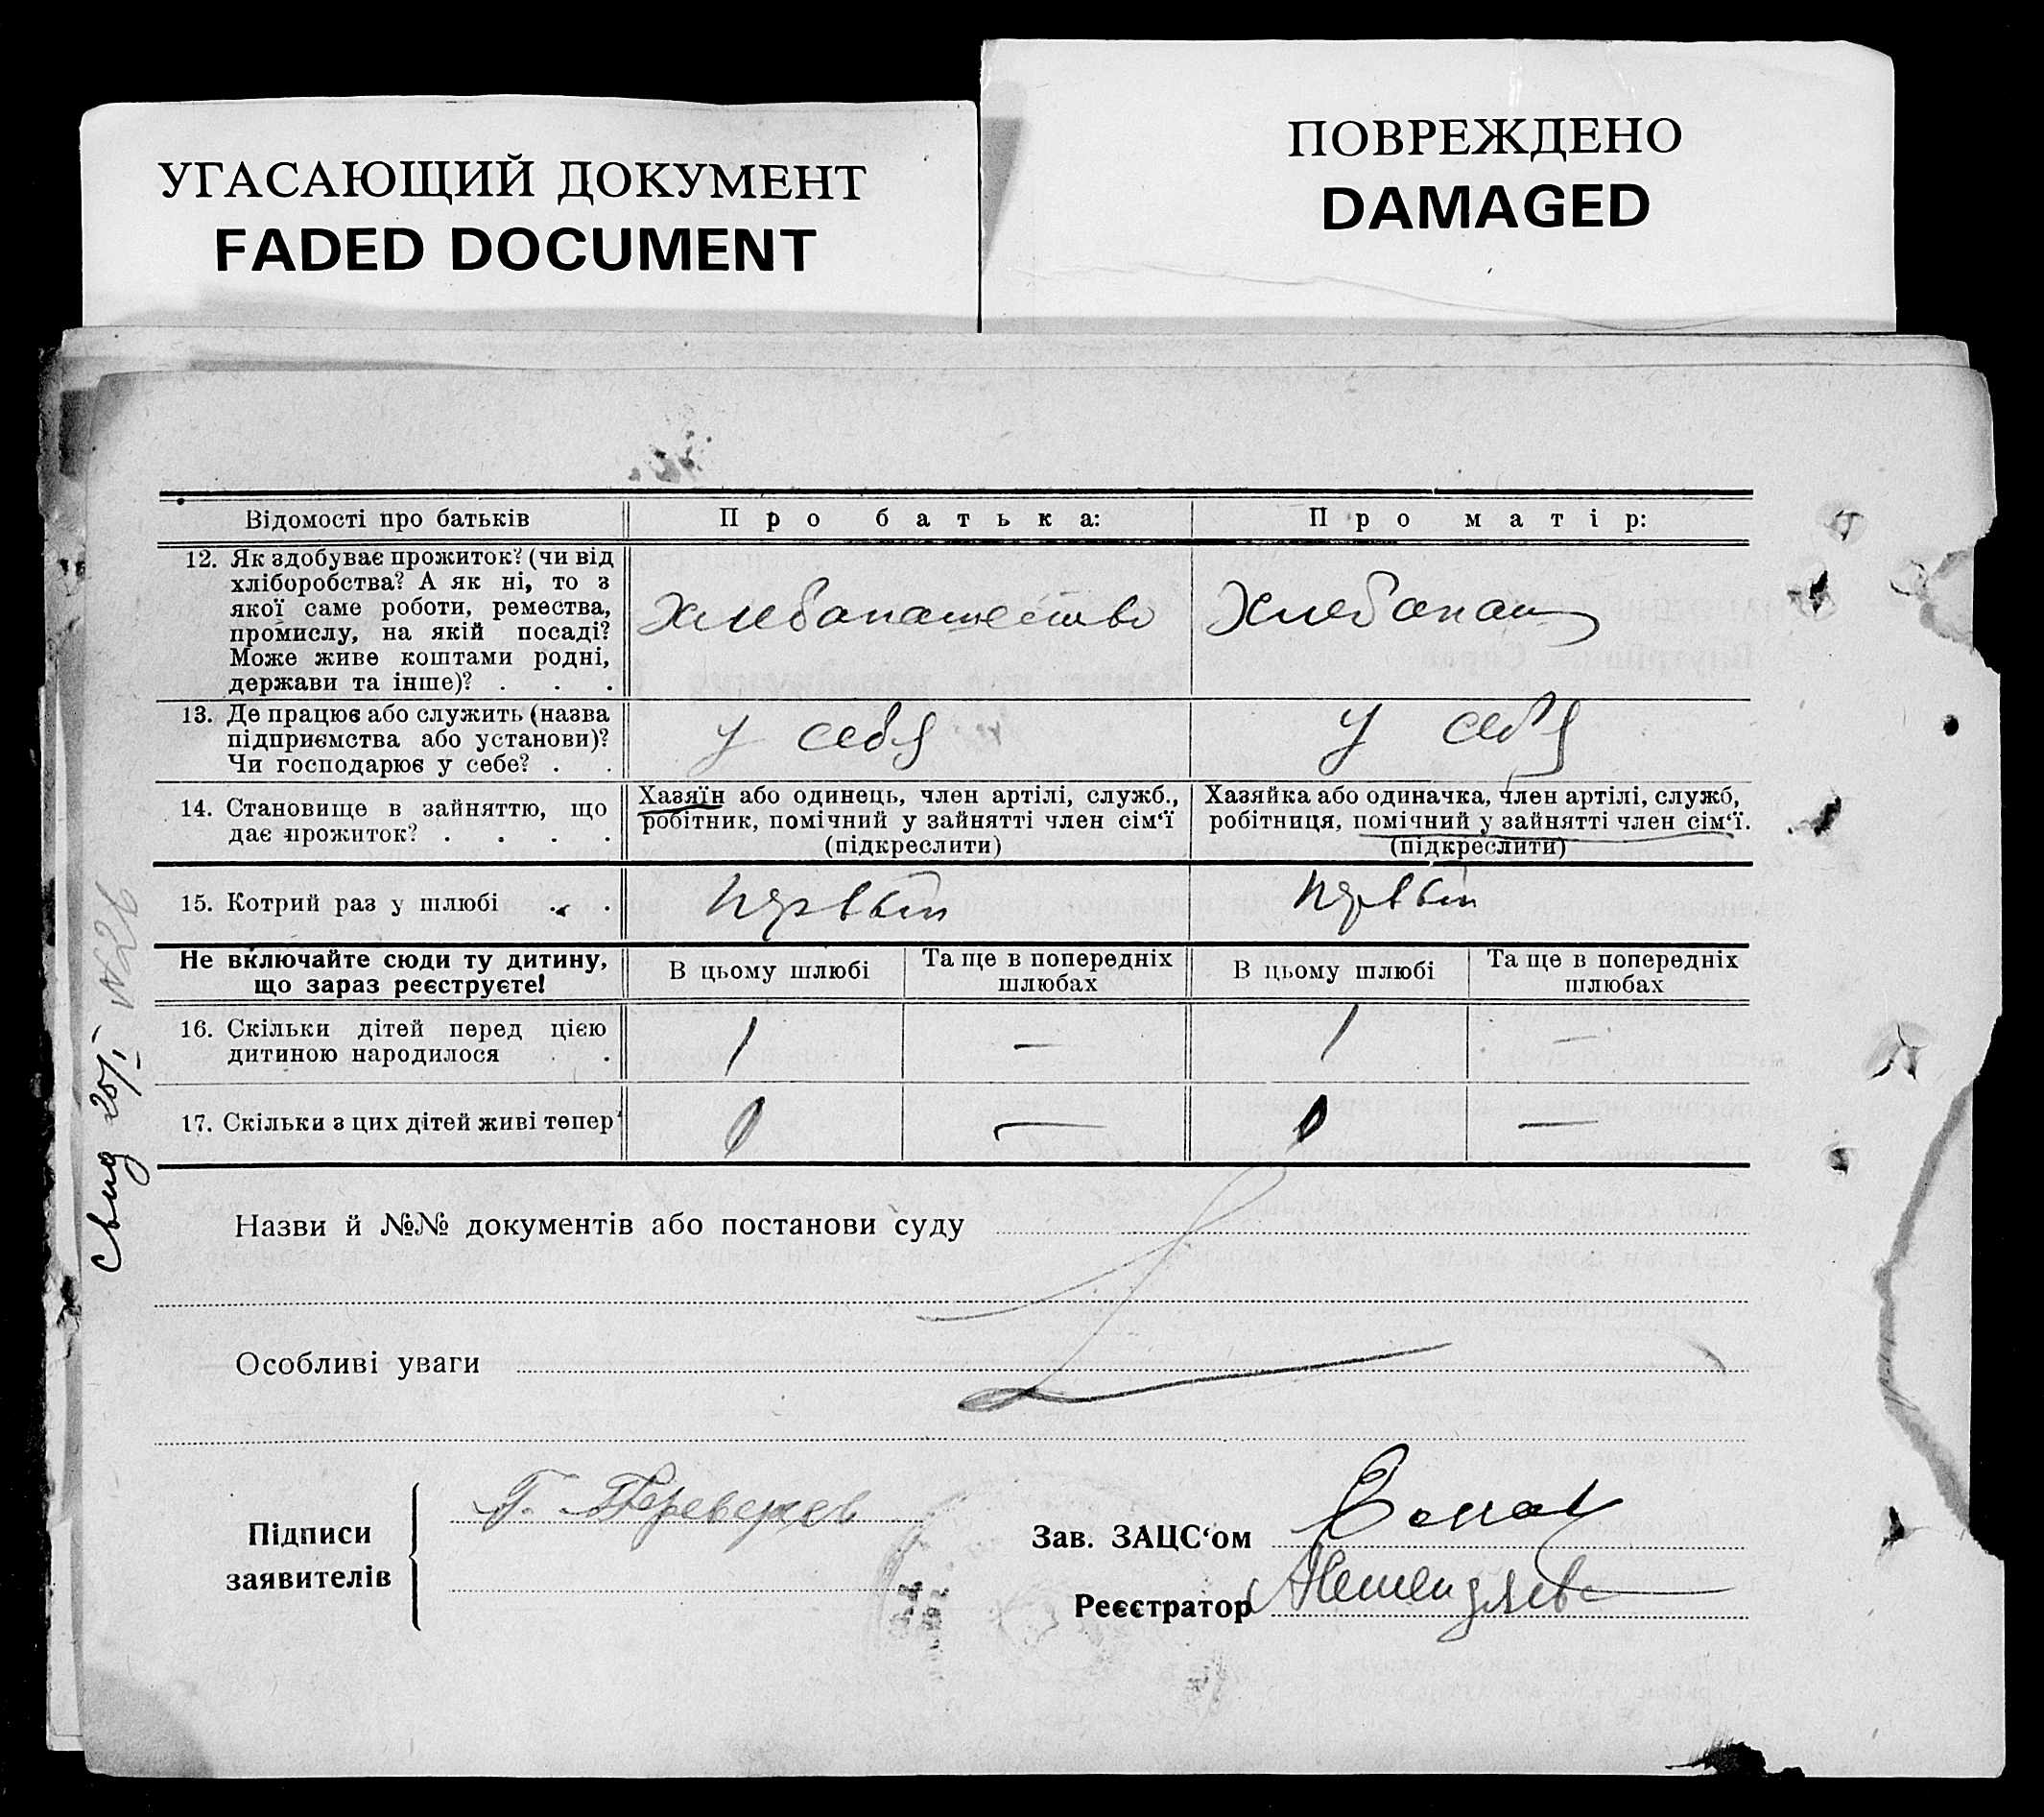 УГАСАЮЩИЙ ДОКУМЕНТ
FADED DOCUMENT
ПОВРЕЖДЕНО
DAMAGED
Відомості про батьків
Про батька:
Про матір:
12. Як здобуває прожиток? (чи від
хліборобства? А як ні, то з
якої саме роботи, ремества,
промислу, на якій посаді?
Може живе коштами родні,
держави та інше)? . . .
Хлебапашество
Хлебапаш
13. Де працює або служить (назва
підприємства або установи)?
Чи господарює у себе? . .
у себя
у себя
14. Становище в зайняттю, що
дає прожиток? . . . .
Хазяїн або одинець, член артілі, служб.,
робітник, помічний у зайнятті член сім‘ї
(підкреслити)
Хазяйка або одиначка, член артілі, служб,
робітниця, помічний у зайнятті член сім‘ї.
(підкреслити)
15. Котрий раз у шлюбі . .
первый
первый
Не включайте сюди ту дитину,
що зараз реєструєте!
В цьому шлюбі
Та ще в попередніх
шлюбах
В цьому шлюбі
Та ще в попередніх
шлюбах
16. Скільки дітей перед цією
дитиною народилося .
1
—
1
—
17. Скільки з цих дітей живі тепер
0
—
0
—
Назви й №№ документів або постанови суду
Особливі уваги
Підписи
заявителів
Г. Переверзев
Зав. ЗАЦС‘ом
Реєстратор
Свид 25/I №26